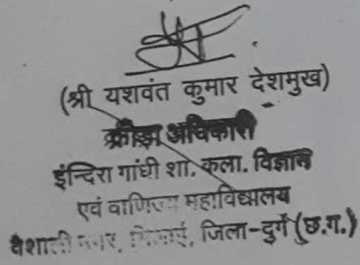 (श्री यशवंत कुमार देशमुख)
क्रीड़ा अधिकारी
इन्दिरा गांधी शा. कला. विज्ञान
एवं वाणिज्य महाविद्यालय
वैशाली नगर, भिलाई, जिला-दुर्ग (छ.ग.)